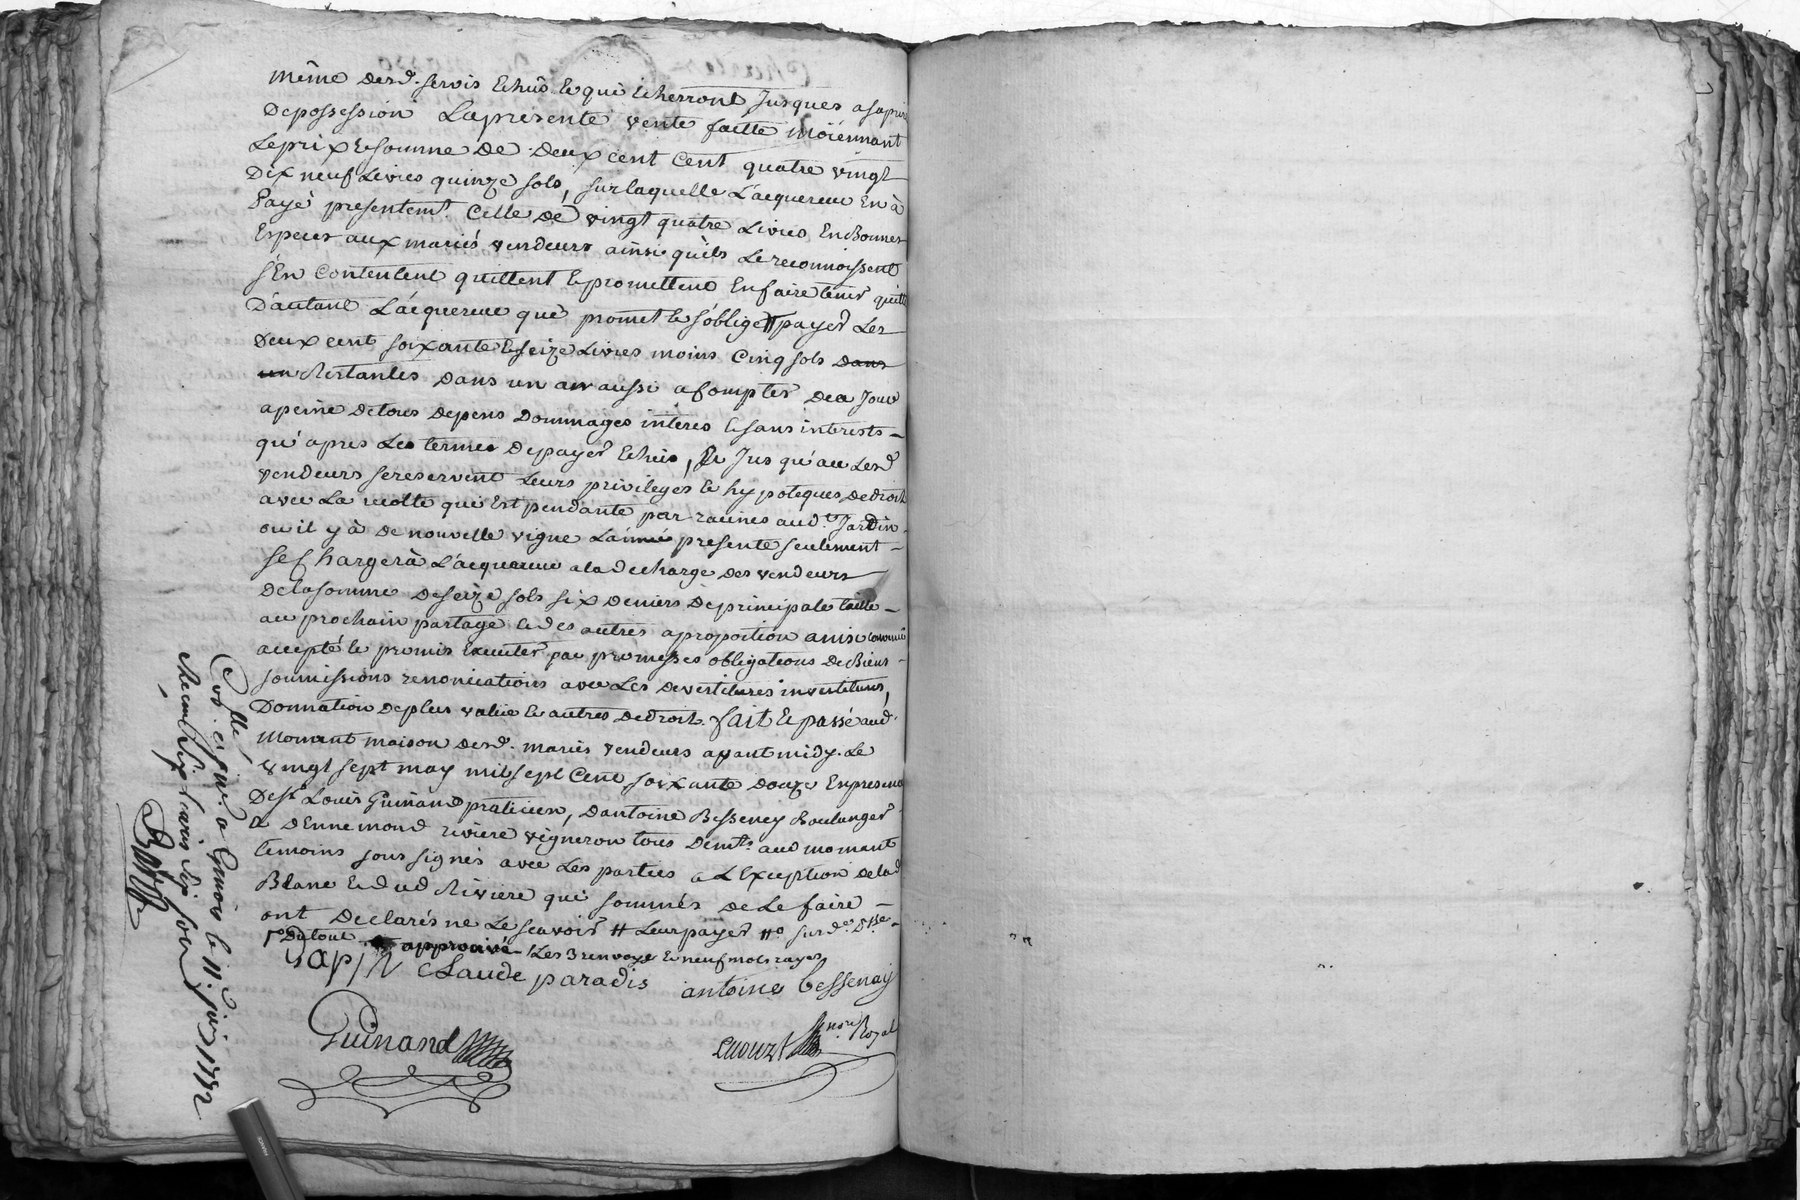 même desd. servis Echûs Et qui Echerront Jusques a sa prise
De possession La présente vente faitte moïennant
Le prix Et somme De Deux cent Cent quatre vingt
Dix neuf Livres quinze sols, sur laquelle L'acquereur En à
Payé presentemt. Celle de vingt quatre Livres En Bonnes
Especes aux mariés vendeurs ainsi qu'ils Le reconnoissent
s'En Contentent quittent Et promettent En faire tenir quitte
D'autant L'acquereur que promet Et s'oblige # payer Les
Deux cent soixante Et seize Livres moins Cinq sols dans
un Restantes dans un an aussi a Compter de ce Jour
a peine de tous depens Dommages intères Et sans interests
qu'apres Les termes De payer Echûs, Et Jusqu'au Lesd
vendeurs se reservent Leurs privileges Et hypoteques de droit
avec La recolte qui Est pendante par racines aud.t Jardin
ou il y à De nouvelle vigne L'année presente seulement
se Chargerà L'acquereur a la Decharge des vendeurs
De la somme De seize sols six Deniers De principale taille
au prochain partage Et des autres a proportion ainsi convenu
accepté Et promis Executer par promesses obligations De Biens
soumissions renonciations avec Les Devestitures investitures,
Donnation De plus value Et autres De droit. fait Et passé aud.
Mornant maison desd. mariés vendeurs avant midy. Le
vingt sept may mil sept Cent soixante Douze En presence
De sr. Louis Guinand praticien, D'antoine Besseney Boulanger
Et D'Ennemond riviere vigneron tous Demts. aud mornant
temoins soussignés avec Les parties a L'Exception de lad
Blanc Et dud Riviere qui sommés De Le faire
ont Declarés ne Le sçavoir # Leur payer
Du tout approuvé Les 3 renvoys Et neuf mots rayés
Papin Claude paradis antoine bessenay
Guinand
nore. Royal
Collé. et a le 11e. juin 1772
Recu six sols